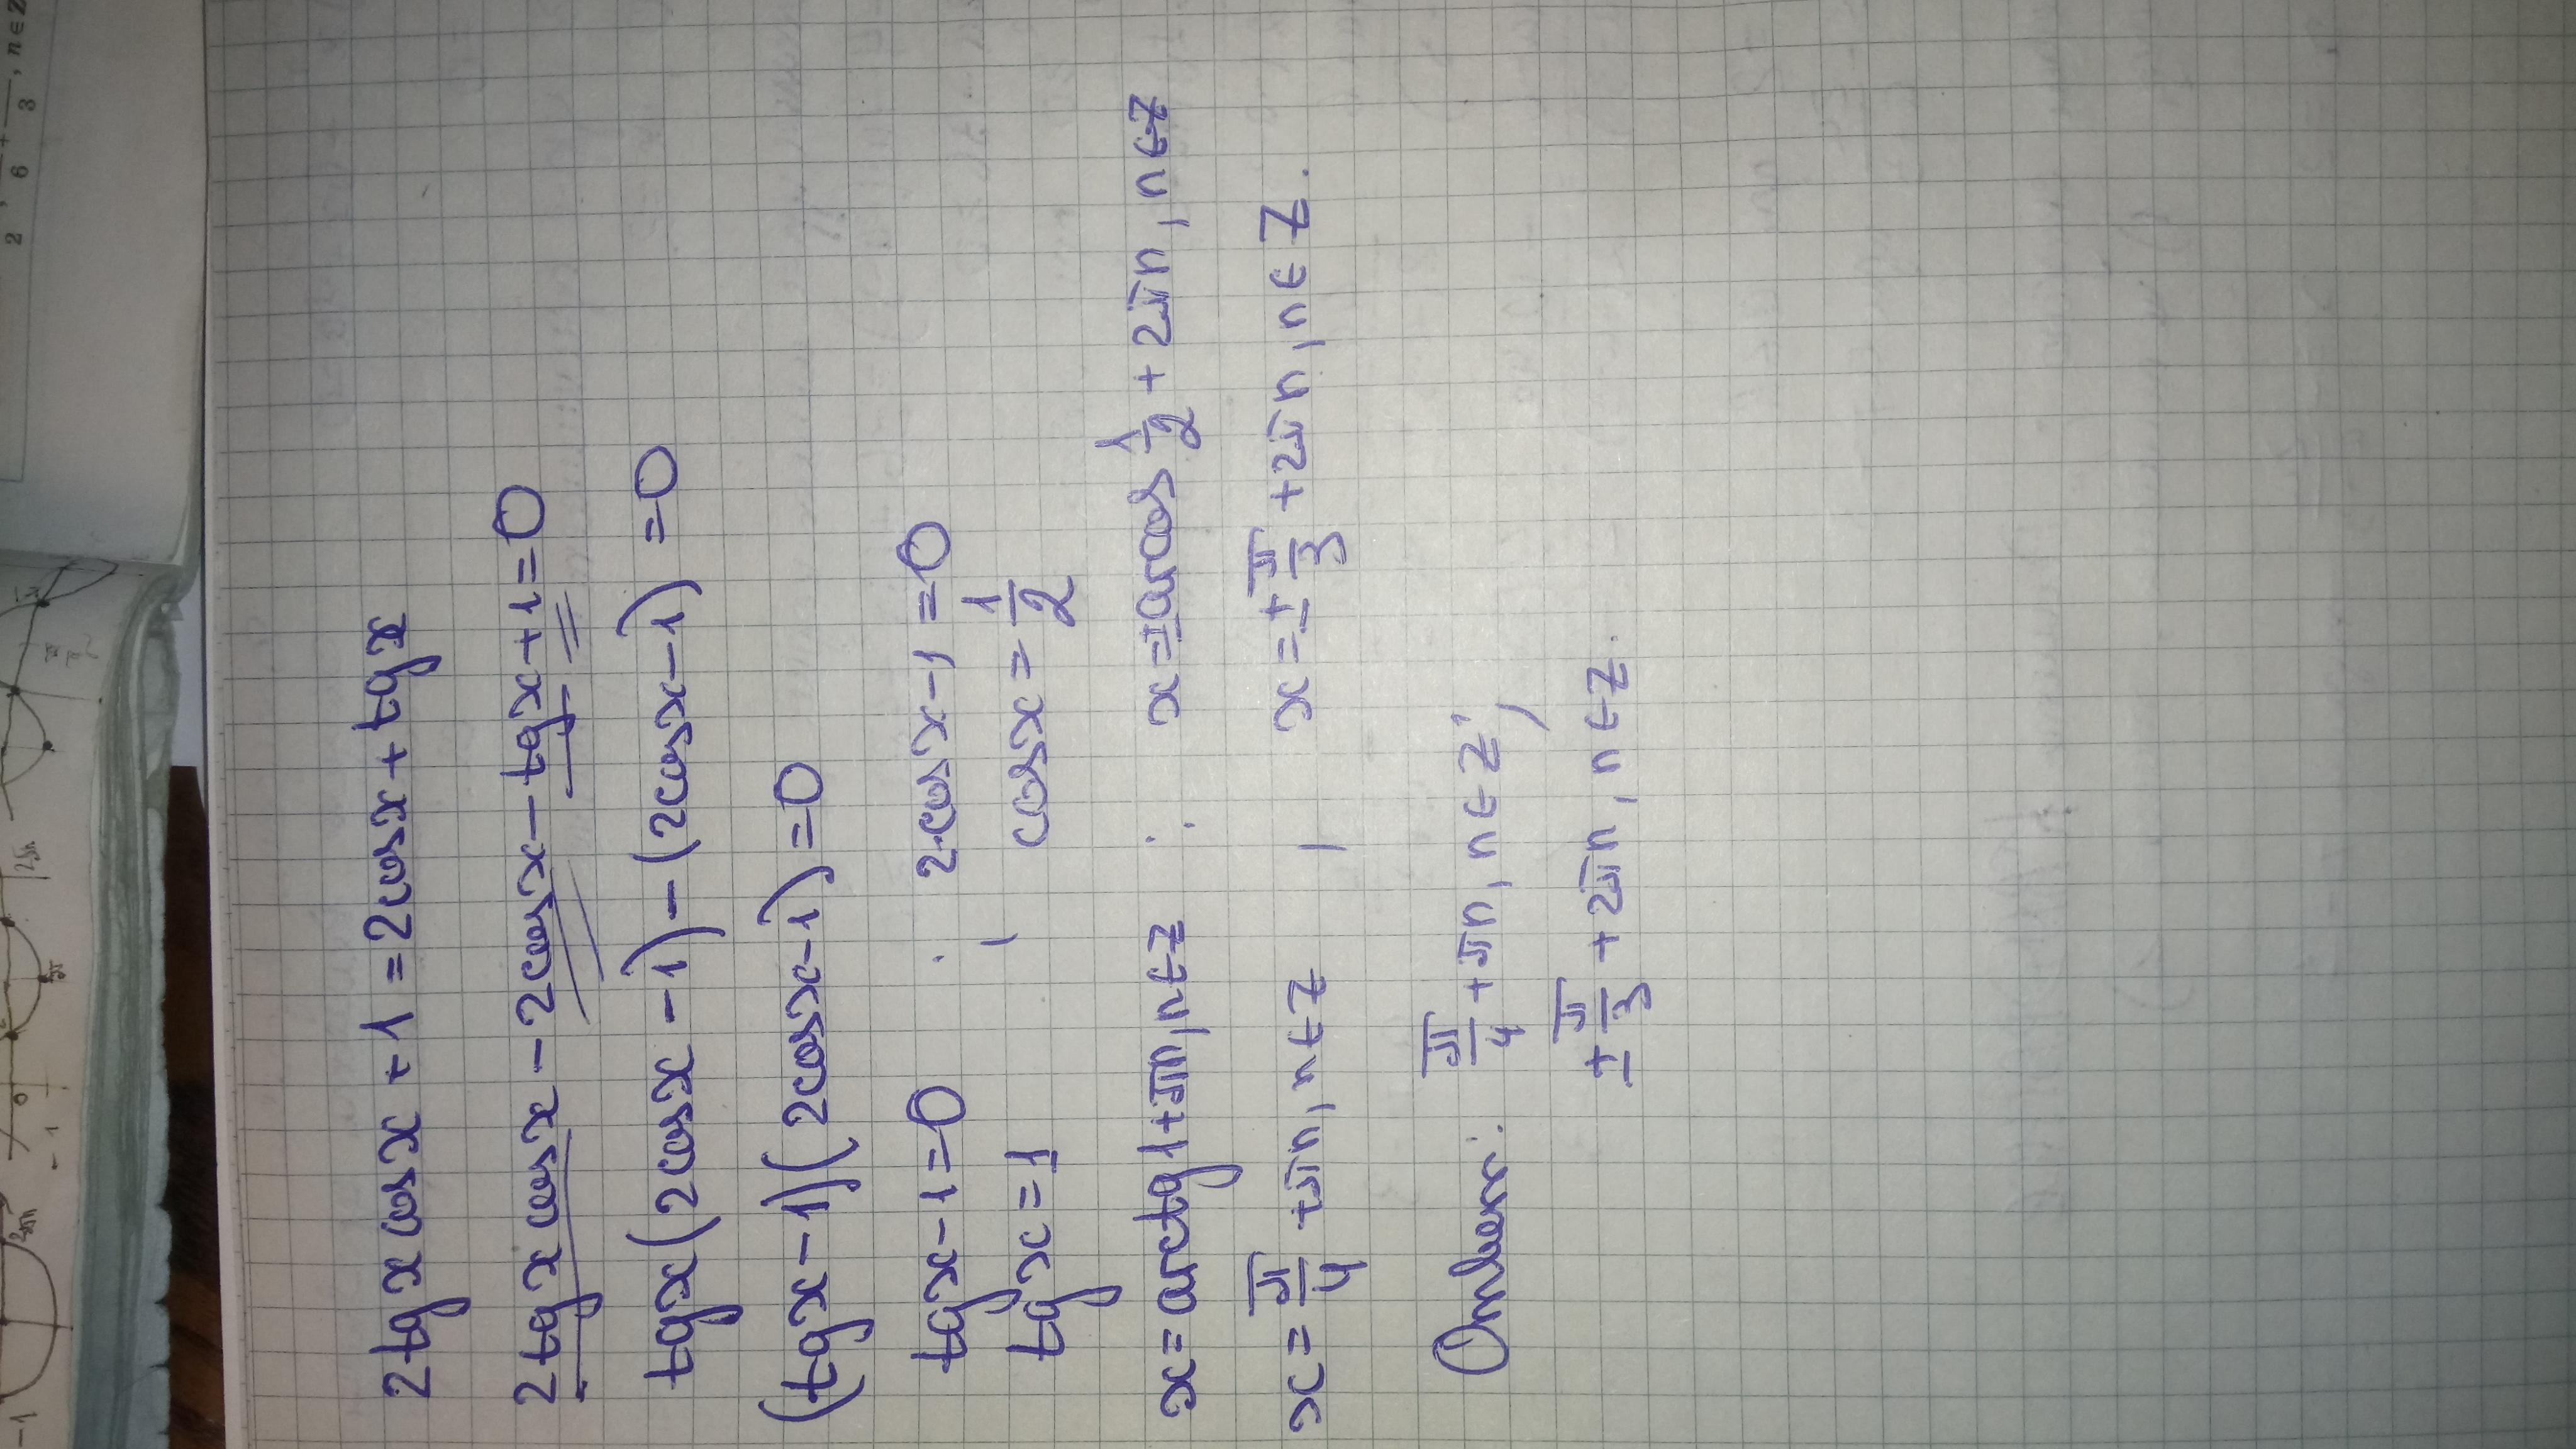 2tgxcosx+1=2cosx+tgx
2tgxcosx-2cosx-tgx+1=0
tgx(2cosx-1)-(2cosx-1)=0
(tgx-1)(2cosx-1)=0
tgx-1=0 2cosx-1=0
tgx=1 cosx=1/2
x=arctg1+πn, n∈Z x=±arcos 1/2+2πn, n∈Z
x=π/4+πn, n∈Z x=±π/3+2πn, n∈Z.
Ответ: π/4+πn, n∈Z;
±π/3+2πn, n∈Z.